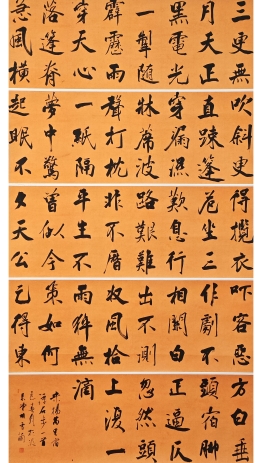 三更無
月天正
黑電光
一掣隨
霹靂雨
穿天心
落篷脊
急風橫
吹斜更
直疎篷
穿漏濕
牀席波
聲打枕
一紙隔
夢中驚
起眠不
得攬衣
危坐三
歎息行
路艱難
非不曆
平生不
曾似今
夕天公
吓客惡
作劇不
相關白
出不測
收風拾
雨猝無
策如何
乞得東
方白垂
頭宿脚
正逼仄
忽然頭
上復一
滴